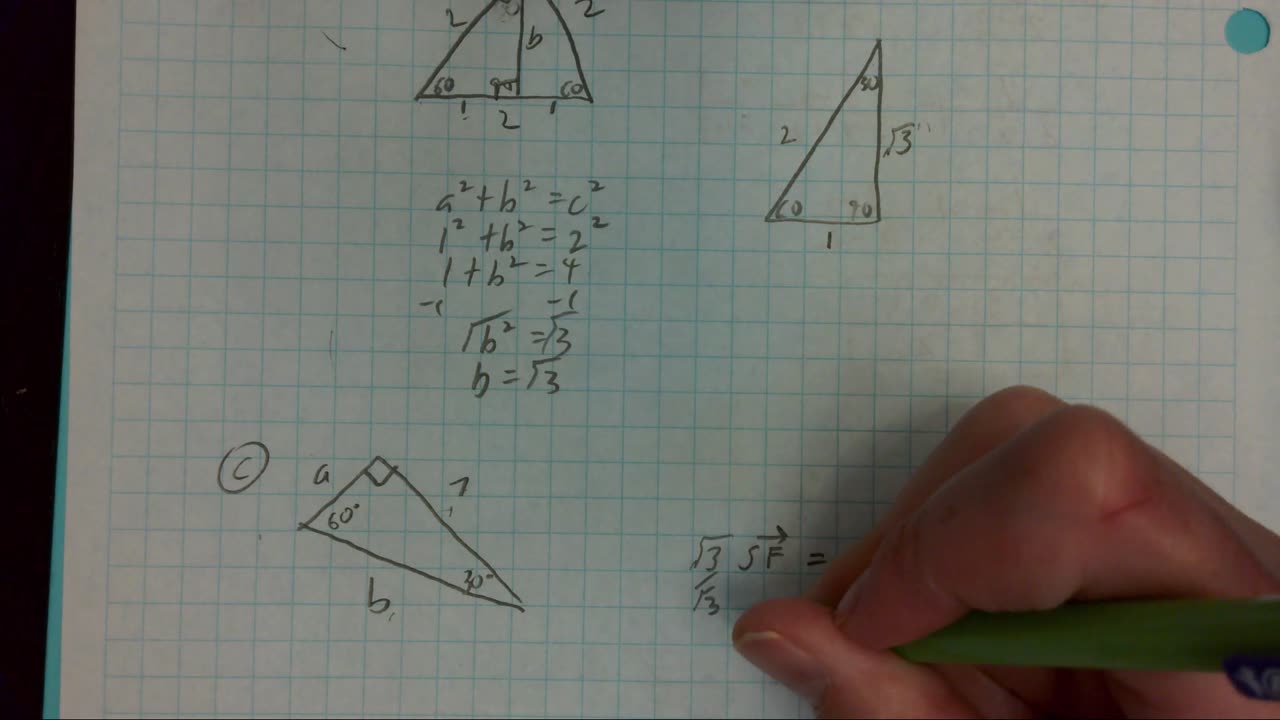 2 2
b
60 90 60
1 1
2
30
2 √3
60 90
1
a² + b² = c²
1² + b² = 2²
1 + b² = 4
-1 -1
√b² = √3
b = √3
C
a 7
60°
30°
b
√3 SF =
√3